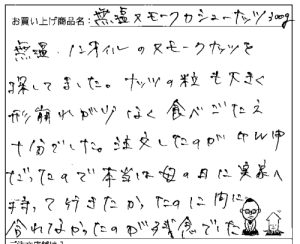 お買い上げ商品名:無塩スモークカシューナッツ300g
無塩、にオイルのスモークナッツを
探してました。ナッツの粒も大きく
形崩れが少なく食べごたえ
十分でした。注文したのがGW中
だったので本当は母の日に実家へ
持って行きたかったのに間に
合わなかったのが残念でした